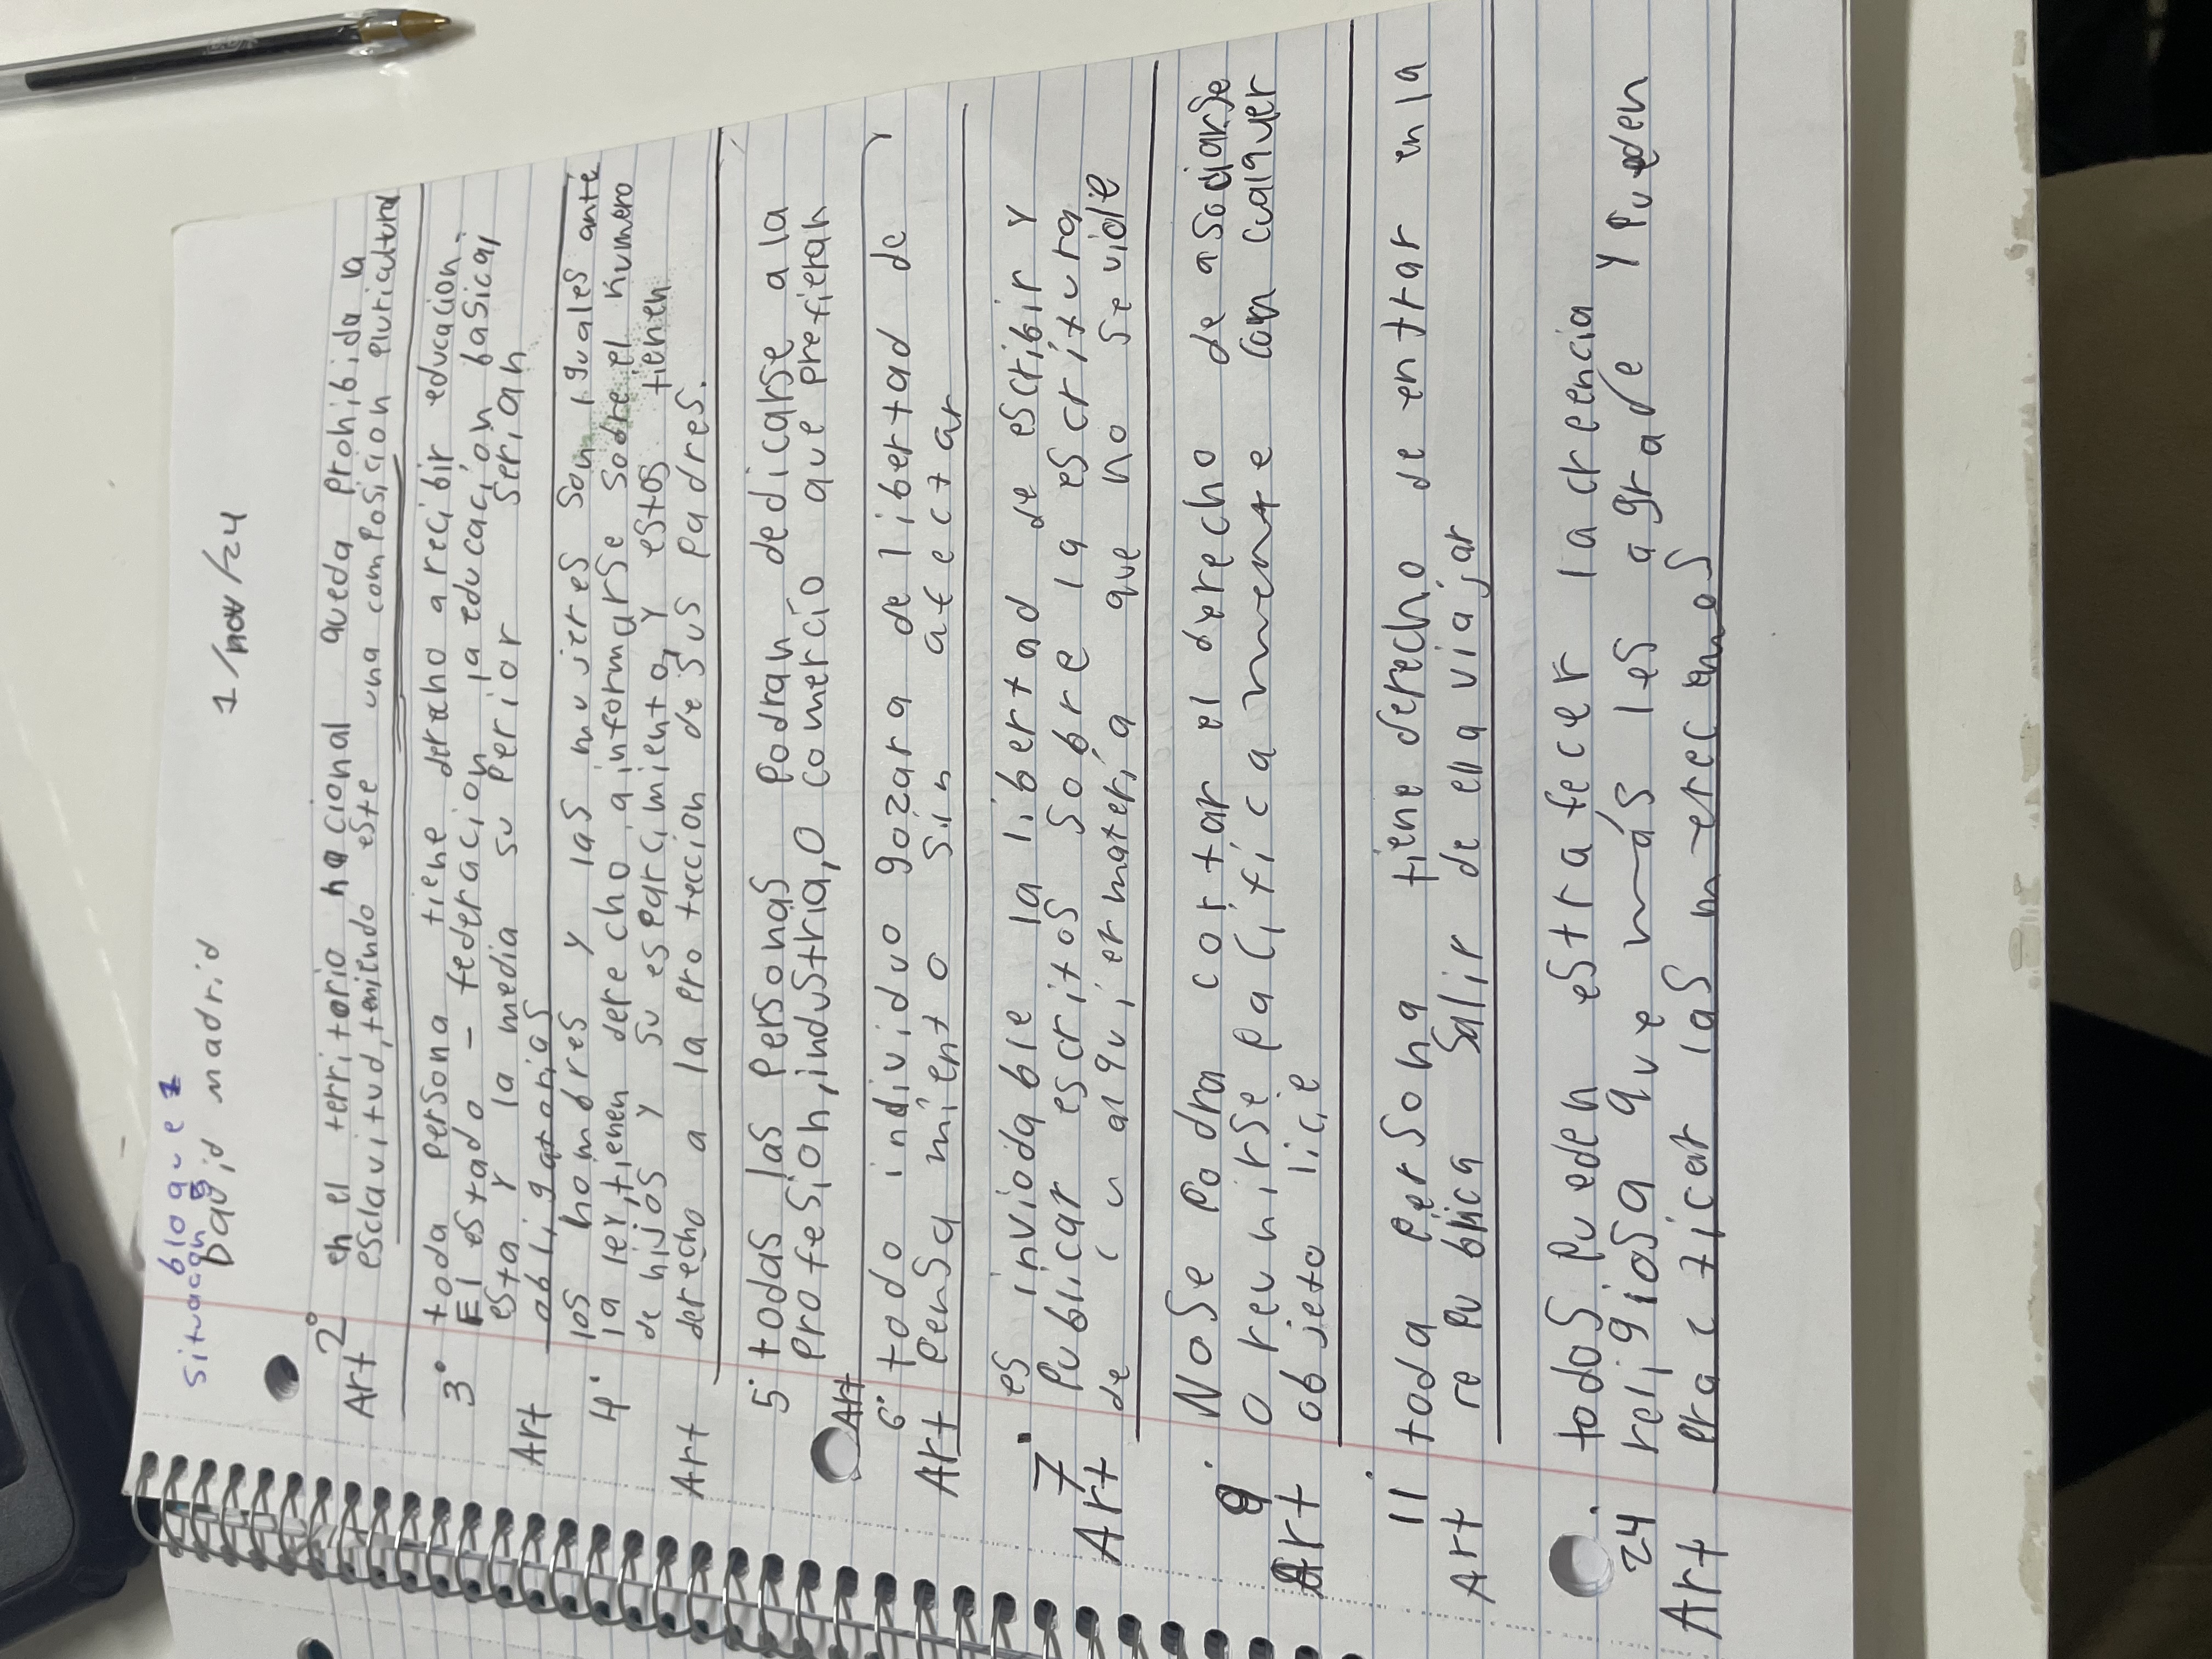 situacan bloque 2
David madrid 1/nov/24
Art 2° en el territorio nacional queda prohibida la
esclavitud, teniendo este una composicion pluricultural
3° toda persona tiene derecho a recibir educacion.
El estado - federacion la educación basica,
esta y la media superior serian
Art obligatorias
4° los hombres y las mujeres son iguales ante
la ley, tienen derecho a informarse sobre el numero
de hijos y su esparcimiento, y estos tienen
Art derecho a la protección de sus padres.
5° todas las personas podran dedicarse a la
profesion, industria, o comercio que prefieran
Art
6° todo individuo gozara de libertad de
Art pensamiento sin afectar
7° es inviodable la libertad de escribir y
publicar escritos sobre la escritura
Art de cualquier materia que no se viole
9° No se podra cortar el derecho de asociarse
o reunirse pacificamente con cualquer
Art objeto licie
11° toda persona tiene derecho de entrar en la
Art republica salir de ella viajar
24° todos pueden estrafecer la creencia
religiosa que más les agrade y pueden
Art praczicar las merecemos